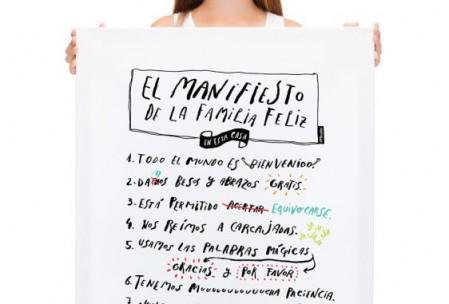 EL MANIFIESTO
DE LA FAMILIA FELIZ
EN ESTA CASA
1. TODO EL MUNDO ES ¡BIENVENIDO!
2. DAMOS BESOS Y ABRAZOS GRATIS.
3. ESTÁ PERMITIDO ACERTAR EQUIVOCARSE.
4. NOS REÍMOS A CARCAJADAS.
5. USAMOS LAS PALABRAS MÁGICAS
GRACIAS Y POR FAVOR
6. TENEMOS MUUUUUUUUUCHA PACIENCIA.